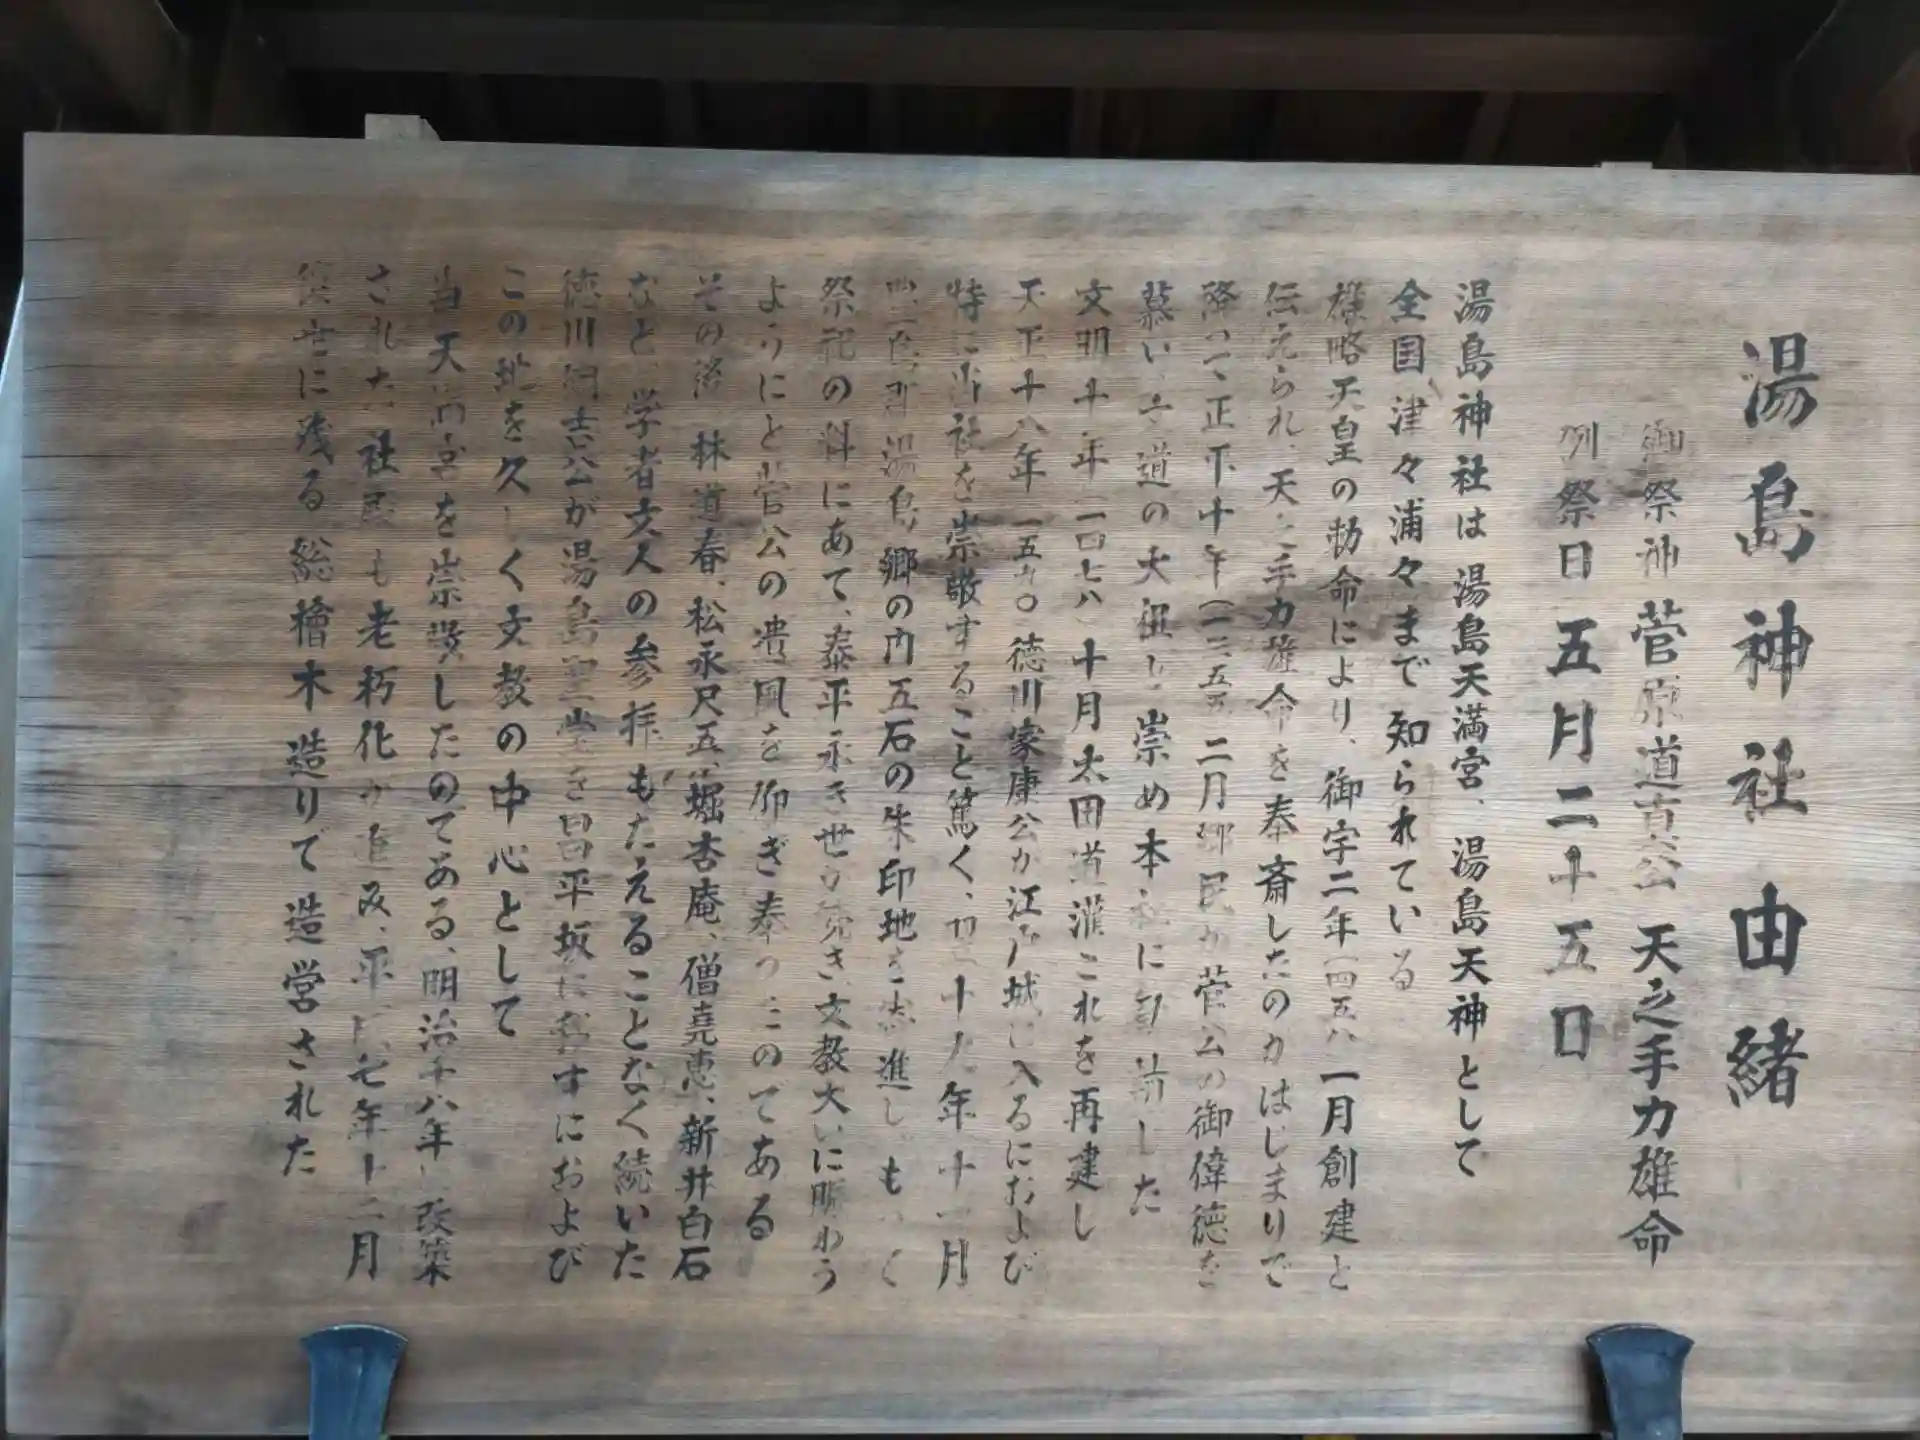 湯島神社由緒
御祭神 菅原道真公 天之手力雄命
例祭日 五月二十五日
湯島神社は湯島天満宮、湯島天神として
全国、津々浦々まで知られている
雄略天皇の勅命により、御宇二年(四五八 一月創建と
伝えられ、天之手力雄命を奉斎したのがはじまりで
降って正平十年(一三五五 二月郷民が菅公の御偉徳を
慕い 文道の大祖と崇め本社に勧請した
文明十年(一四七八)十月太田道灌これを再建し
天正十八年 一五九〇 徳川家康公が江戸城に入るにおよび
特に当社を崇敬すること篤く、翌十九年十一月
豊島郡湯島郷の内五石の朱印地を 進し もって
祭祀の料にあて、泰平永き世が続き、文教大いに賑わう
ようにと菅公の遺風を仰ぎ奉ったのである
その後 林道春、松永尺五、堀杏庵、僧堯恵、新井白石
など、学者文人の参拝もたえることなく続いた
徳川綱吉公が湯島聖堂を昌平坂に移すにおよび
この地を久しく文教の中心として
当天満宮を崇敬したのである、明治十八年に改築
された社殿も老朽化が進み、平成七年十二月
後世に残る総檜木造りで造営された